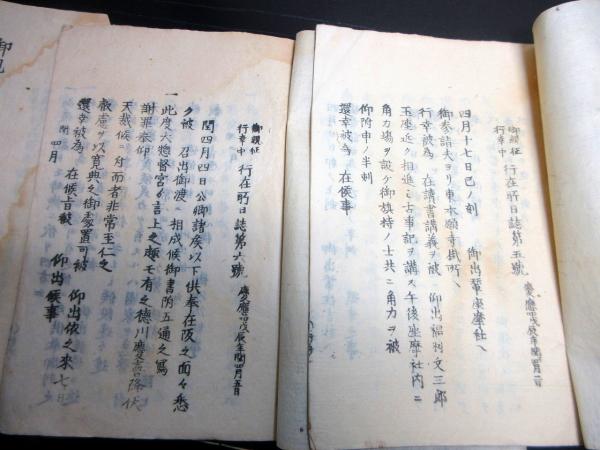 御親征
行幸中 行在所日誌第五號 慶應四戊辰年閏四月二日
四月十七日己ノ刻 御出輦座摩社ヘ
御參詣夫ヨリ東本願寺掛所ヘ
行幸被為 在讀書講義ヲ被 仰出福羽文三郎
玉座近ク相進ミ古事記ヲ講ス午後座摩社内ニ
角力場ヲ設ケ御旗持ノ士共ニ角力ヲ被
仰附申ノ半刻
還幸被為 在候事
御親征
行幸中 行在所日誌第六號 慶應四戊辰年閏四月五日
閏四月四日公卿諸矦以下供奉在阪之面々悉
ク被 召出御渡 相成候御書附五通之寫
一 此度大惣督宮ゟ言上之趣モ有之徳川慶喜降伏
謝罪奉仰
天裁候ニ付而者非常至仁之
叡慮ヲ以寛典之御處置可被 仰出依之來七日
還幸被為 在候旨被 仰出候事
閏四月
御親